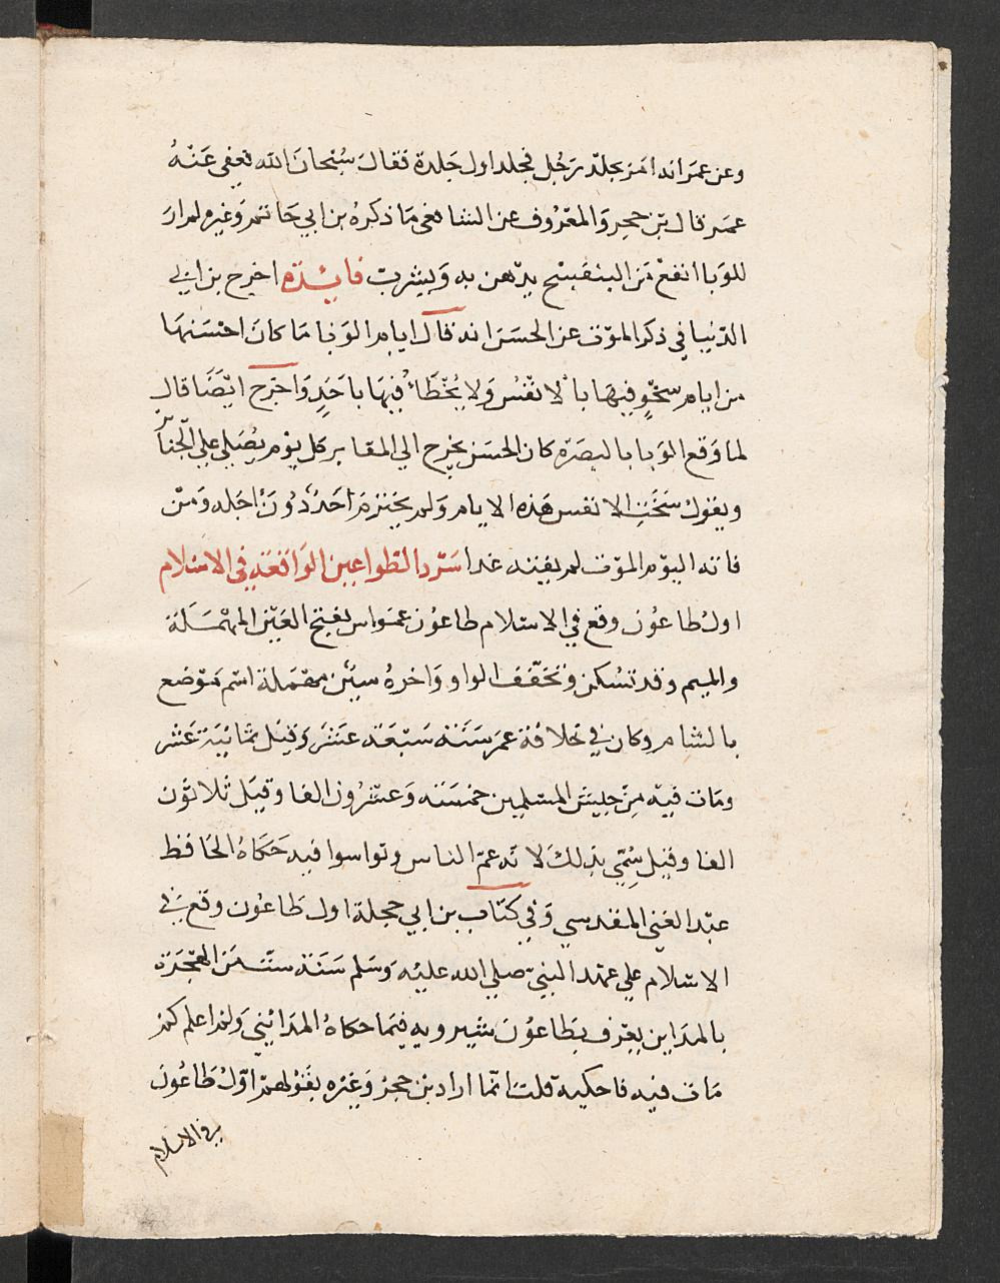 وعن عمر انه امر بجلد رجل فجلد اول جلدة فقال سبحان الله فعفى عنه
عمر قال بن حجر والمعروف عن الشافعى ما ذكره بن ابي حاتم وغيره لم ار
للوبا انفع من البنفسج يدهن به ويشرب فائدة اخرج بن ابي
الدنيا في ذكر الموت عن الحسن انه قال ايام الوبا ما كان احسنها
من ايام سخو فيها بالانفس ولا يخطا فيها باحد واخرج ايضا قال
لما وقع الوبا بالبصرة كان الحسن يخرج الي المقابر كل يوم يصلي علي الجنا
ويقول سخت الانفس هذه الايام ولم يخترم احد دون اجله ومن
فاته اليوم الموت لم يفته غدا سرد الطواعين الواقعة في الاسلام
اول طاعون وقع في الاسلام طاعون عمواس بفتح العين المهملة
والميم وقد تسكن وتخفف الواو واخره سين مهملة اسم موضع
بالشام وكان في خلافة عمر سنة سبعة عشر وقيل ثمانية عشر
ومات فيه من جيش المسلمين خمسة وعشرون الفا وقيل ثلاثون
الفا وقيل سمي بذلك لانه عم الناس وتواسوا فيه حكاه الحافظ
عبد الغني المقدسي وفي كتاب بن ابي حجلة اول طاعون وقع في
الاسلام علي عهد النبي صلي الله عليه وسلم سنة ست من الهجرة
بالمداين يعرف بطاعون شيرويه فيما حكاه المدائني ولم اعلم كم
مات فيه فاحكيه قلت انما اراد بن حجر وغيره بقولهم اول طاعون
في الاسلام